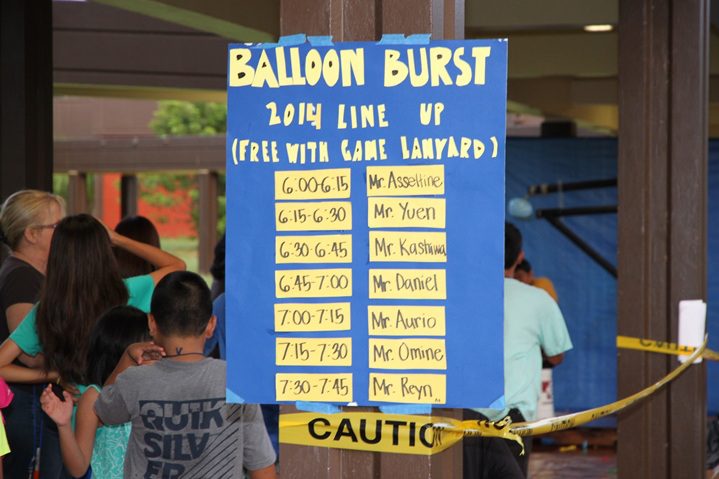 BALLOON BURST
2014 LINE UP
(FREE WITH GAME LANYARD)
6:00-6:15 Mr. Asseltine
6:15-6:30 Mr. Yuen
6:30-6:45 Mr. Kashiwa
6:45-7:00 Mr. Daniel
7:00-7:15 Mr. Aurio
7:15-7:30 Mr. Omine
7:30-7:45 Mr. Reyn
CAUTION
QUIK
SILV
ER